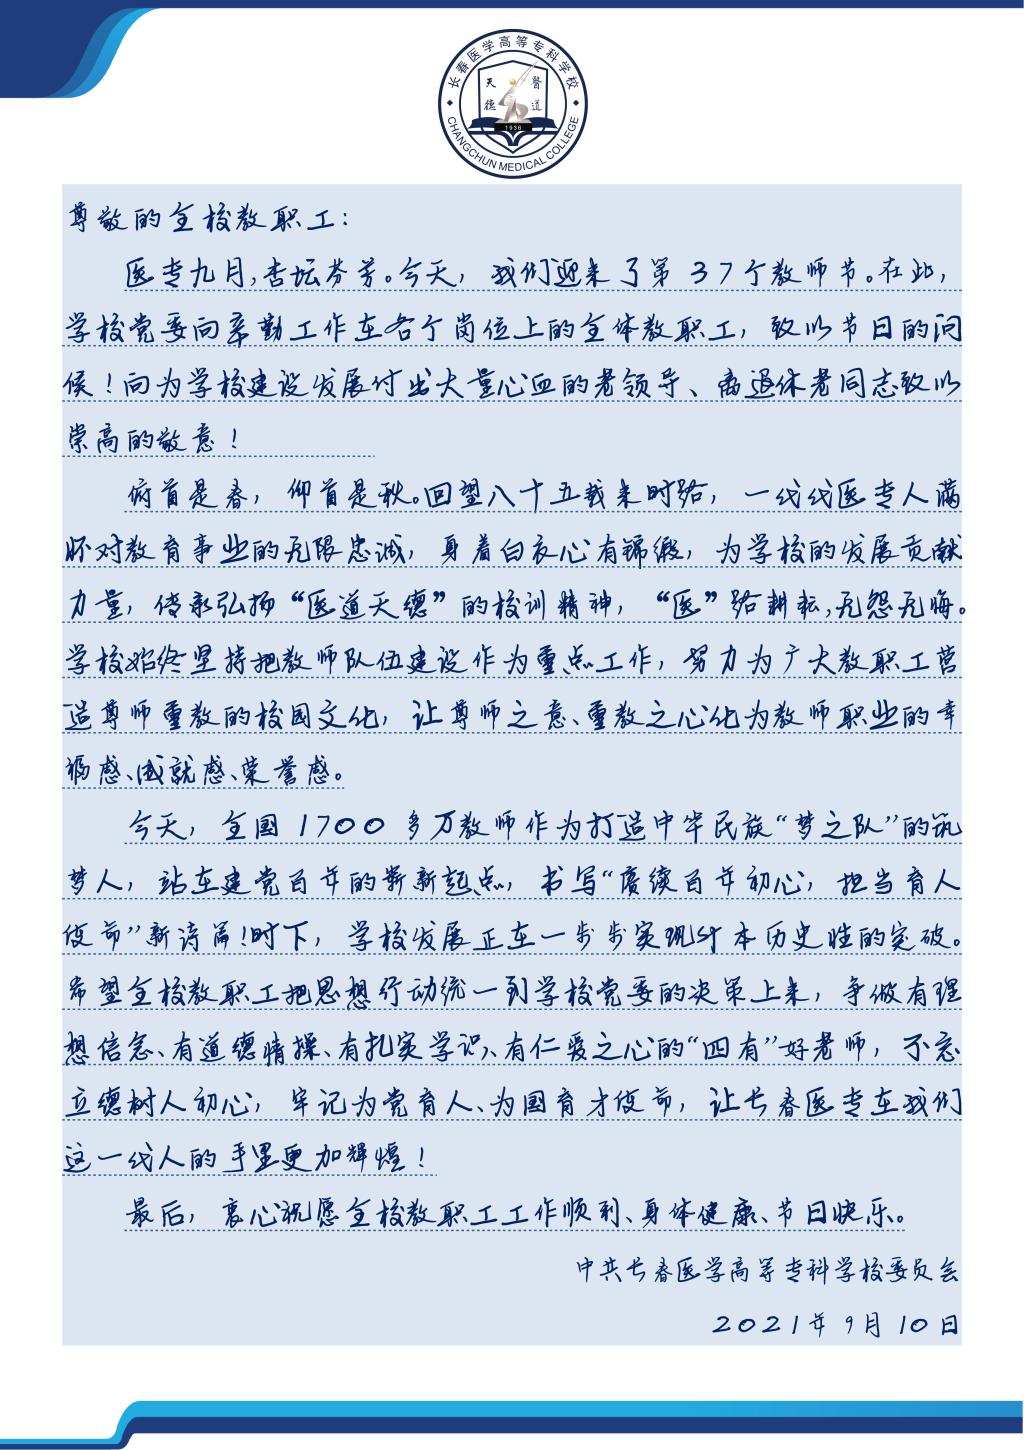 长春医学高等专科学校
天 醫
德 道
1936
CHANGCHUN MEDICAL COLLEGE
尊敬的全校教职工：
医专九月，杏坛芬芳。今天，我们迎来了第37个教师节。在此，
学校党委向辛勤工作在各个岗位上的全体教职工，致以节日的问
候！向为学校建设发展付出大量心血的老领导、离退休老同志致以
崇高的敬意！
俯首是春，仰首是秋。回望八十五载来时路，一代代医专人满
怀对教育事业的无限忠诚，身着白衣心有锦缎，为学校的发展贡献
力量，传承弘扬“医道天德”的校训精神，“医”路耕耘，无怨无悔。
学校始终坚持把教师队伍建设作为重点工作，努力为广大教职工营
造尊师重教的校园文化，让尊师之意、重教之心化为教师职业的幸
福感、成就感、荣誉感。
今天，全国1700多万教师作为打造中华民族“梦之队”的筑
梦人，站在建党百年的崭新起点，书写“赓续百年初心，担当育人
使命”新诗篇！时下，学校发展正在一步步实现升本历史性的突破。
希望全校教职工把思想行动统一到学校党委的决策上来，争做有理
想信念、有道德情操、有扎实学识、有仁爱之心的“四有”好老师，不忘
立德树人初心，牢记为党育人、为国育才使命，让长春医专在我们
这一代人的手里更加辉煌！
最后，衷心祝愿全校教职工工作顺利、身体健康、节日快乐。
中共长春医学高等专科学校委员会
2021年9月10日